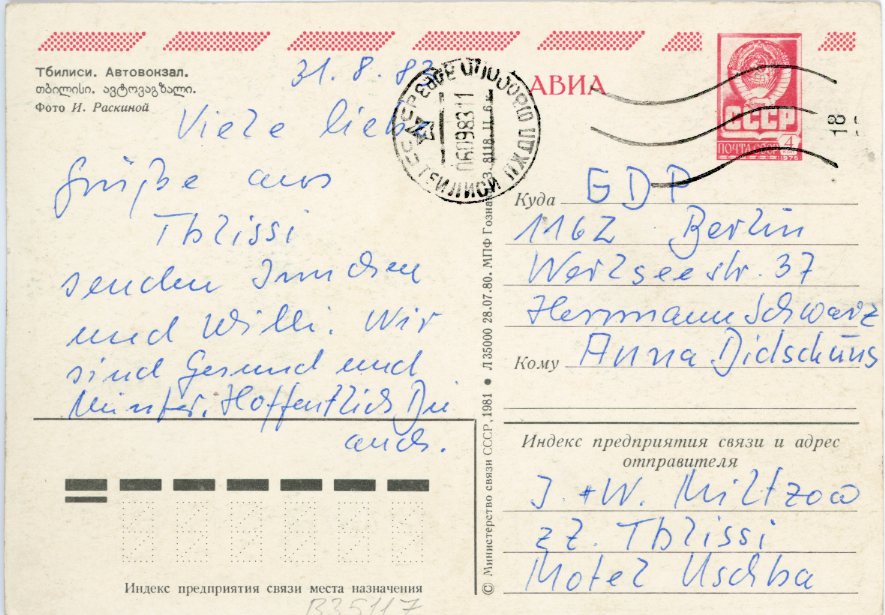 Тбилиси. Автовокзал.
თბილისი. ავტოვაგზალი.
Фото И. Раскиной
31.8.83
Viele liebe
Grüße aus
Tblissi
senden Innchen
und Willi. Wir
sind Gesund und
Munter. Hoffentlich Du
auch.
Индекс предприятия связи места назначения
B35117
© Министерство связи СССР, 1981 ● Л35000 28.07.80. МПФ Гознака
АВИА
СССР
ПОЧТА СССР 4
1976
060983 11
ТБИЛИСИ
18
Куда GDR
1162 Berlin
Werlseestr. 37
Herrmann Schwarz
Кому Anna Didschuns
Индекс предприятия связи и адрес
отправителя
I. + W. Miltzow
zZ. Tblissi
Motel Uschba